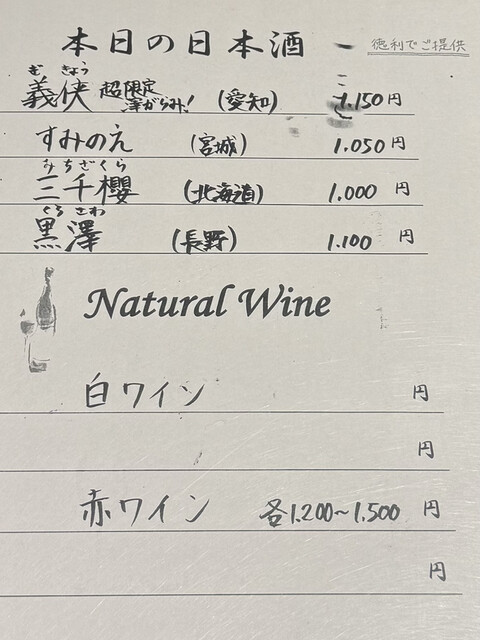 本日の日本酒
徳利でご提供
ぎ きょう
義侠 超限定 澤がらみ! (愛知) 1.150円
すみのえ (宮城) 1.050円
みちざくら
三千櫻 (北海道) 1.000円
くろさわ
黒澤 (長野) 1.100円
Natural Wine
白ワイン 円
円
赤ワイン 各1.200~1.500円
円